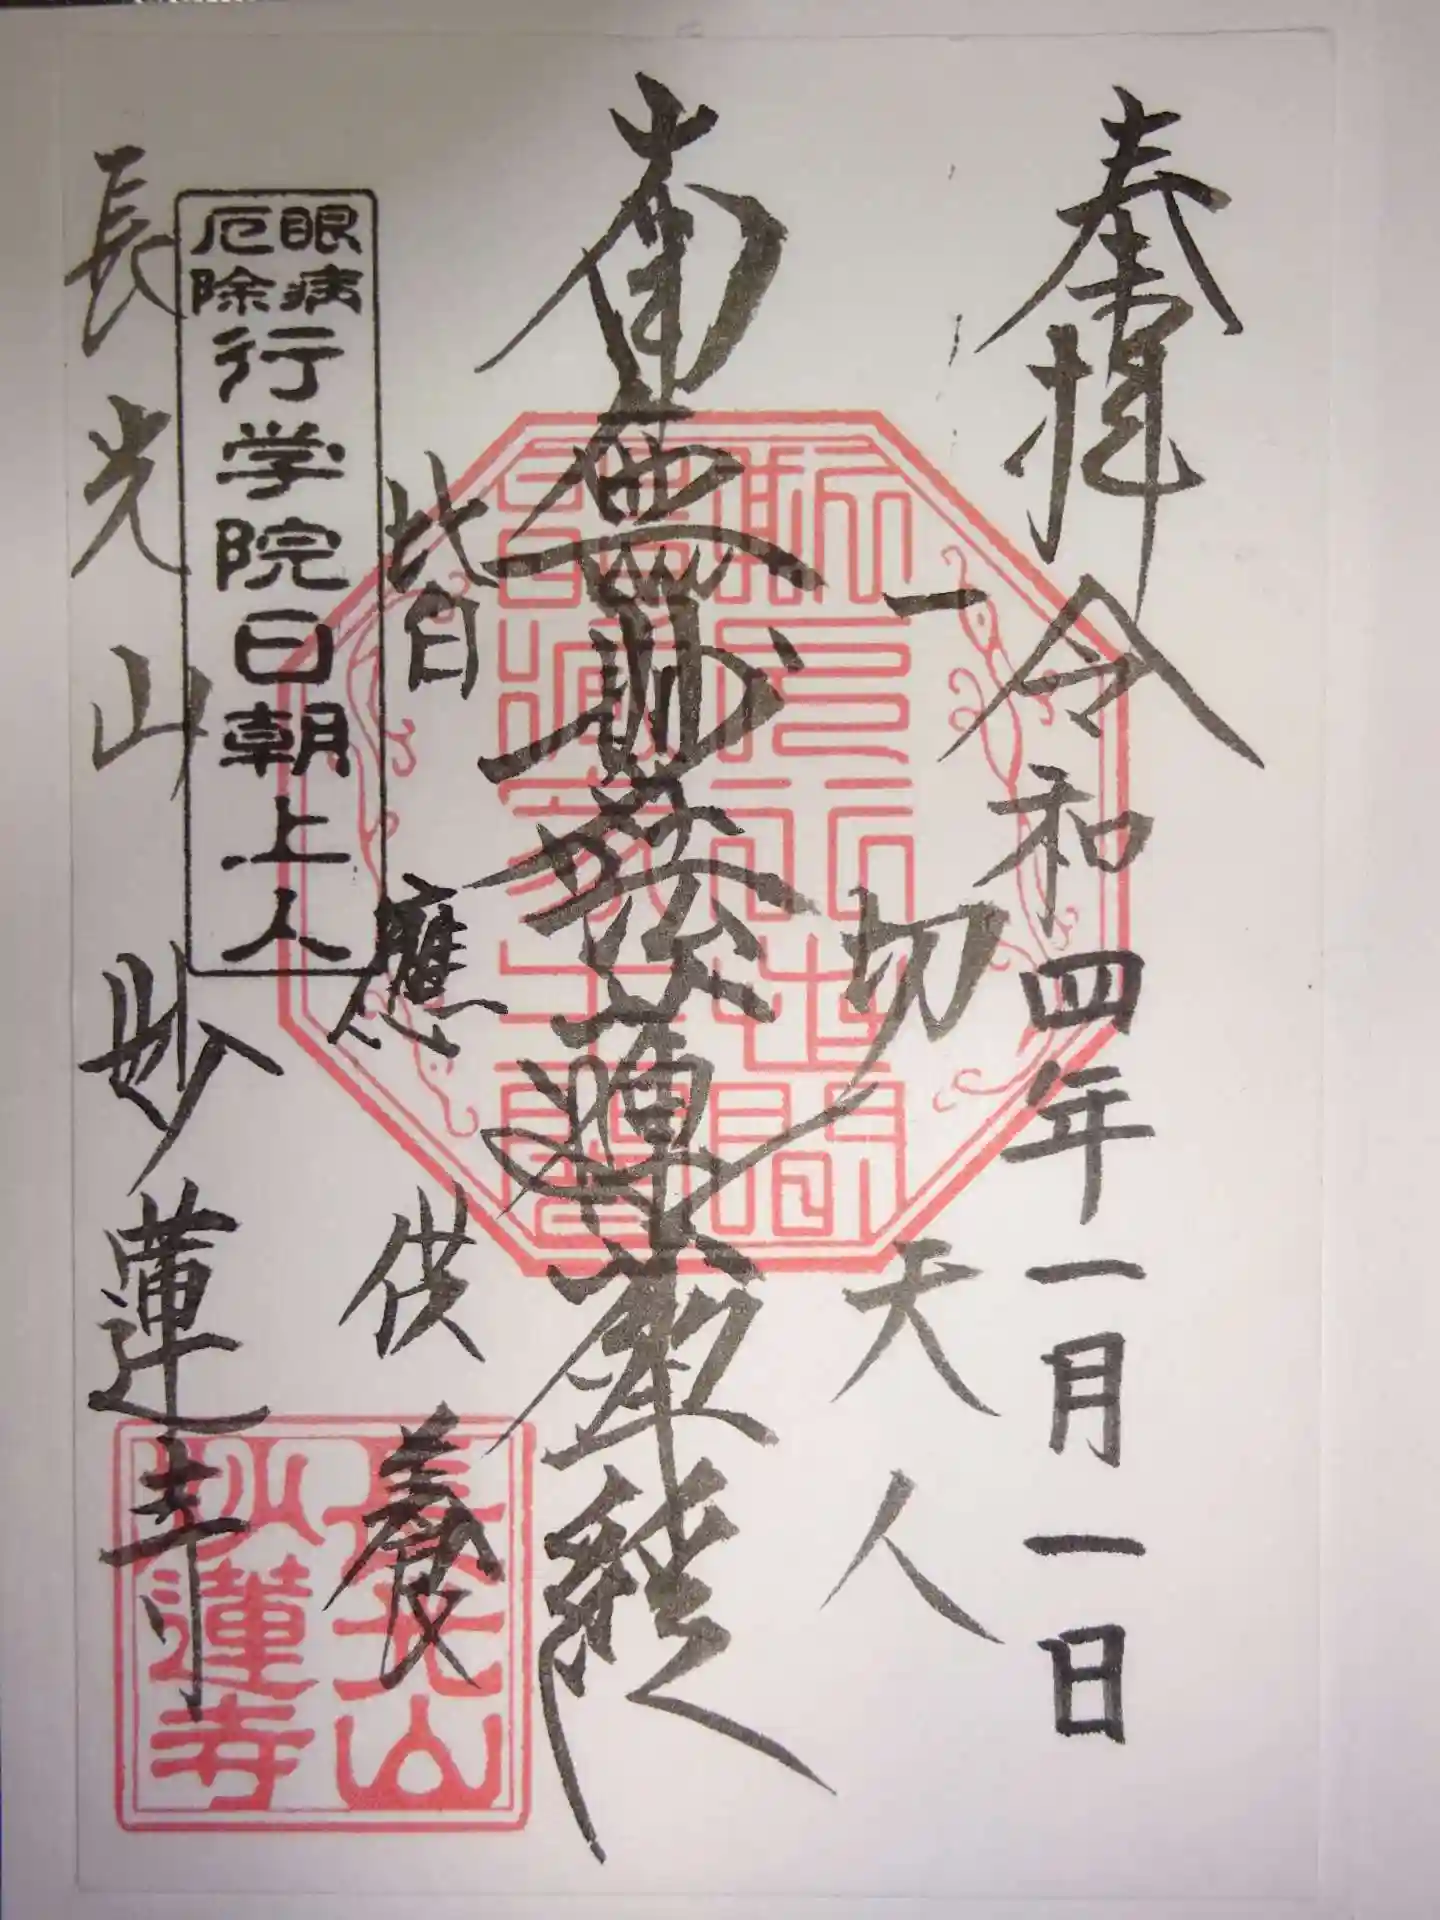 奉拝 令和四年一月一日
一切天人
南無妙法蓮華経
皆應供養
眼病
厄除
行学院日朝上人
長光山 妙蓮寺
斯人行世間
能滅衆生闇
長光山
妙蓮寺